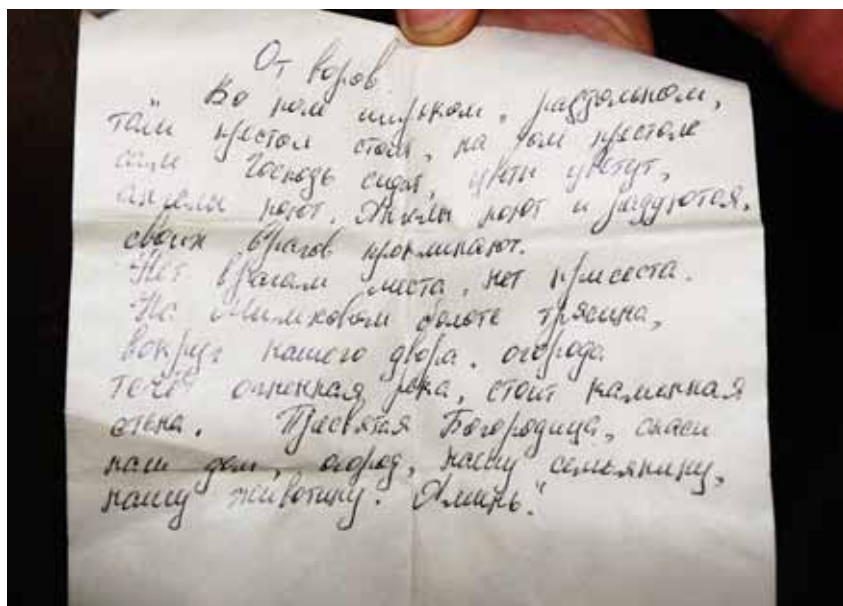 От воров
Во пол широком, раздольном,
там престол стоит, на том престоле
сам Господь сидит, цветы цветут,
ангелы поют. Ангелы поют и радуются,
своих врагов проклинают.
Нет врагам места, нет присеста.
На болоте трясина,
вокруг нашего двора, огорода
течёт огненная река, стоит каменная
стена. Пресвятая Богородица, спаси
наш дом, огород, нашу семьянину,
нашу животину. Аминь."